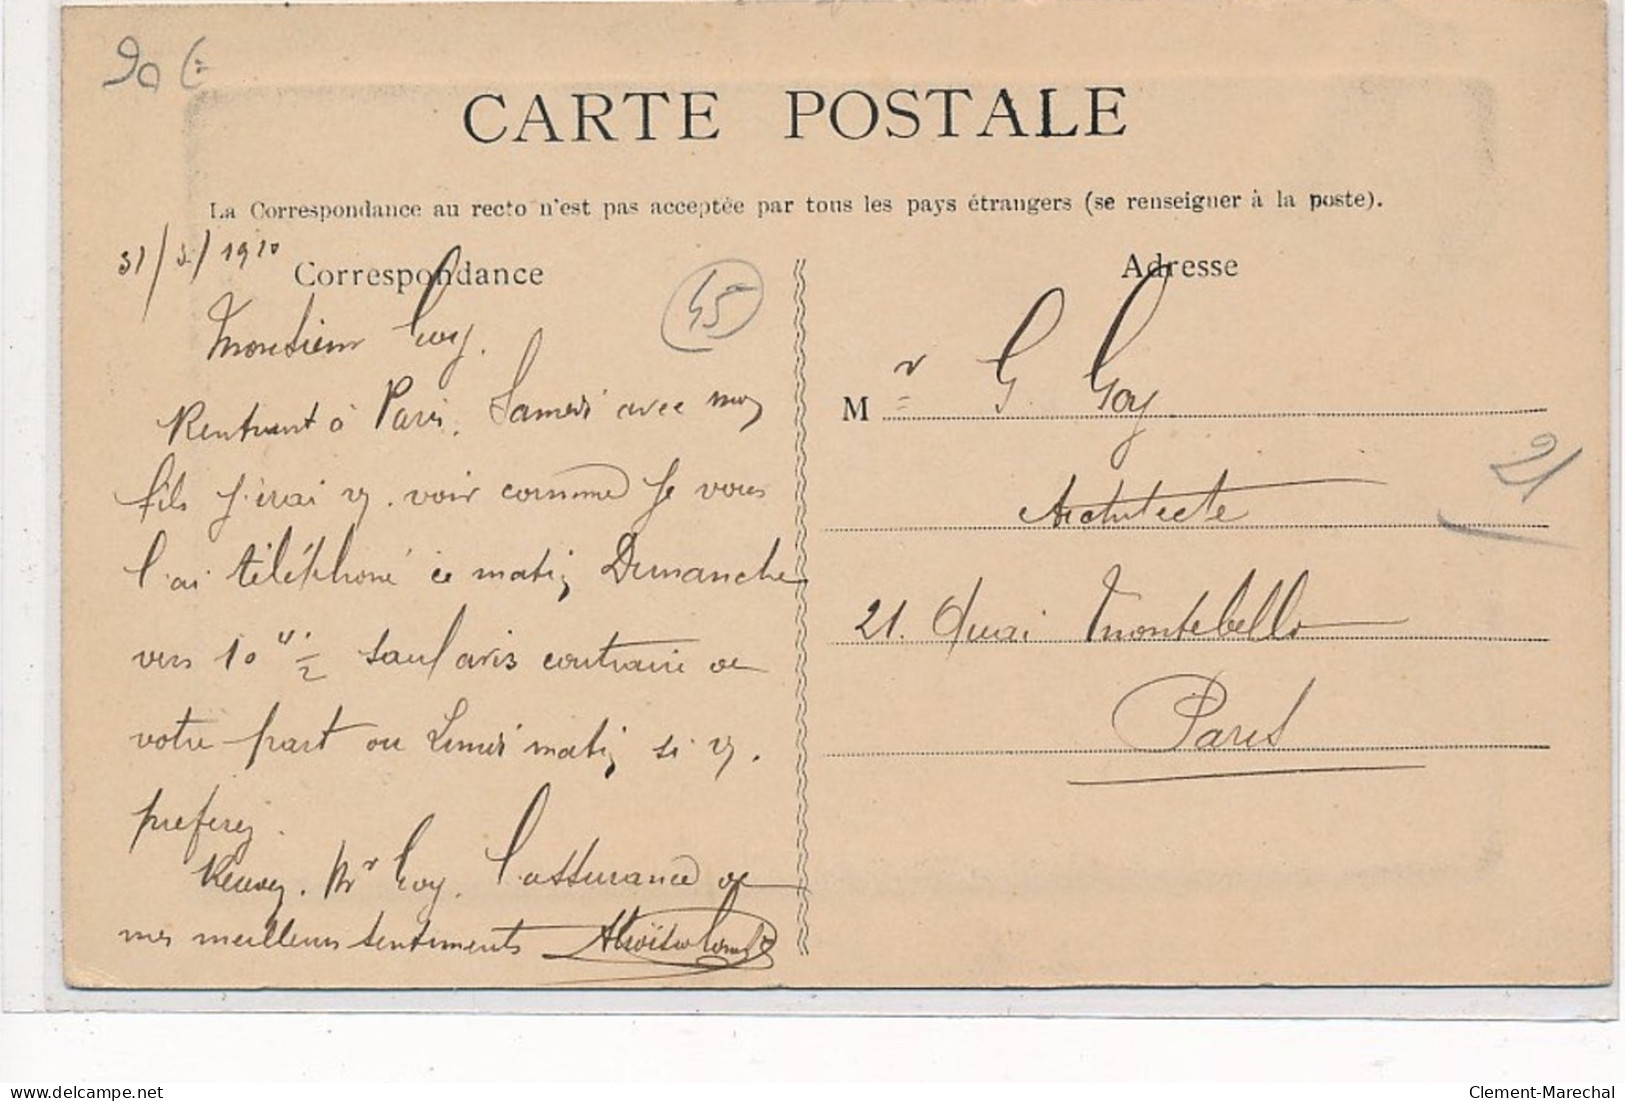 90 €
CARTE POSTALE
La Correspondance au recto n'est pas acceptée par tous les pays étrangers (se renseigner à la poste).
31/3/1910
Correspondance
Adresse
45
Monsieur Goy.
Rentrant à Paris. Samedi avec mon
fils j'irai v. voir comme je vous
l'ai téléphoné ce matin Dimanche
vers 10 h 1/2 sauf avis contraire de
votre part ou Lundi matin si v.
preferez.
Recevez. Mr Goy. l'assurance de
mes meilleurs sentiments
Mr G. Goy
Architecte
21
21. Quai Montebello
Paris
delcampe.net
Clement-Marechal